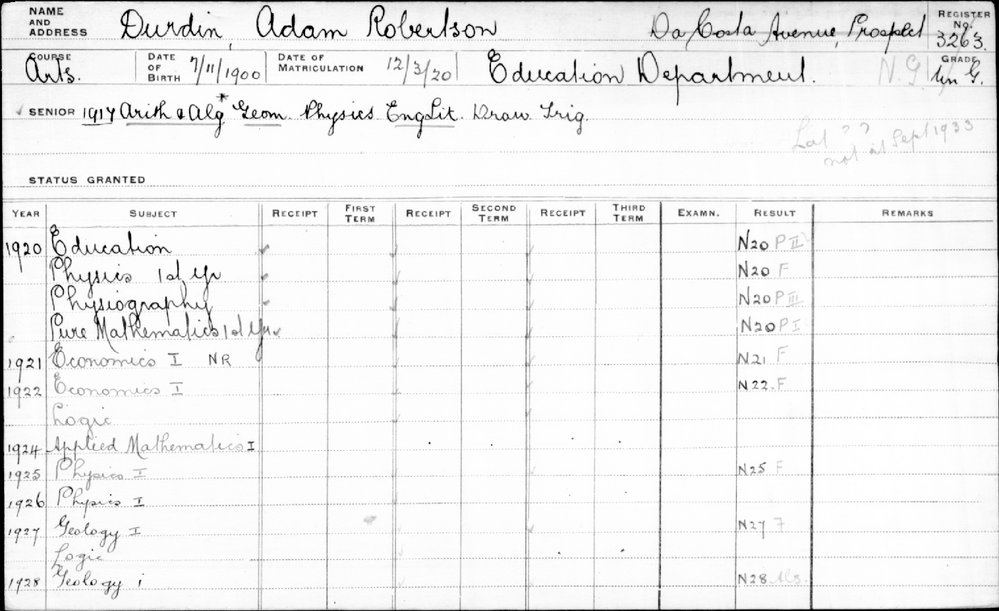 NAME AND ADDRESS Durdin, Adam Robertson Da Costa Avenue, Prospect REGISTER No. 3263.
COURSE Arts. DATE OF BIRTH 7/11/1900 DATE OF MATRICULATION 12/3/20 Education Department. N.G. GRADE Un G.
SENIOR 1917 Arith & Alg* Geom. Physics Eng Lit. Draw Trig.
Lat ? ?
not at Sept 1933
STATUS GRANTED
YEAR SUBJECT RECEIPT FIRST TERM RECEIPT SECOND TERM RECEIPT THIRD TERM EXAMN. RESULT REMARKS
1920 Education N20 P II
Physics 1st Yr N20 F
Physiography N20 P III
Pure Mathematics 1st Yr N20 P I
1921 Economics I NR N21 F
1922 Economics I N22. F
Logic
1924 Applied Mathematics I
1925 Physics I N25 F
1926 Physics I
1927 Geology I N27 F
Logic
1928 Geology i N28 Abs.